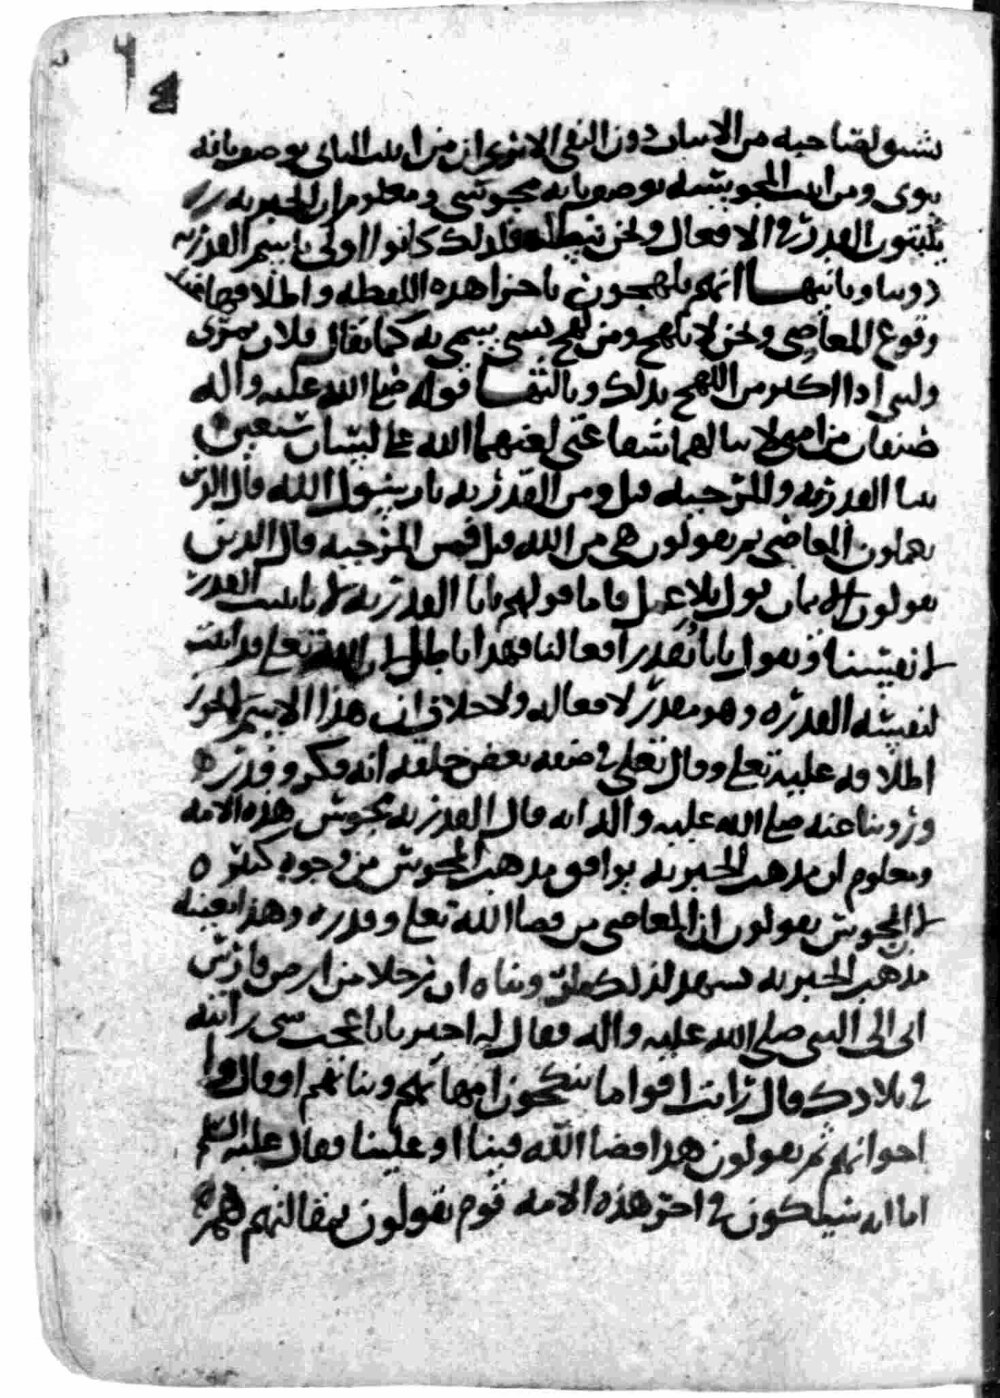 لصاحبه من الاثبات دون النفي الا ترى ان من اثبت الثاني يوصف بانه
ثنوي ومن اثبت المجوسية يوصف بانه مجوسي ومعلوم ان المجبرة
يثبتون القدر في الافعال ونحن ننفيه فلذلك كانوا اولى باسم القدرية
دوننا وثانيها انهم يلهجون هذه اللفظه واطلاقها عند
وقوع المعاصي ونحن لا نلهج ومن لهج بشي سمي به كما يقال فلان تمري
وليس اذا اكثر من اللهج بذلك وثالثها قوله صلى الله عليه واله
صنفان من امتي لا تنالهما شفاعتي لعنهما الله على لسان سبعين
نبيا القدرية والمرجيه قيل ومن القدرية يا رسول الله قال الذين
يعملون المعاصي ثم يقولون هي من الله قيل فمن المرجيه قال الذين
يقولون الايمان قول بلا عمل فاما قولهم بانا القدرية لانا نثبت القدر
لانفسنا ونقول بانا نقدر افعالنا فهذا باطل لان الله تعلى قد اثبت
لنفسه القدره وهو مقدر لافعاله ولا خلاف ان هذا الاسم لا يجوز
اطلاقه عليه تعلى وقال تعلى في صفه بعض خلقه انه فكر وقدر
وروينا عنه صلى الله عليه واله انه قال القدرية مجوس هذه الامه
ومعلوم ان مذهب المجبرية يوافق مذهب المجوس من وجوه كثيره
لان المجوس يقولون ان المعاصي من قضا الله تعلى وقدره وهذا بعينه
مذهب المجبرية يشهد لذلك ما رويناه ان رجلا من ارض فارس
اتى الى النبي صلى الله عليه واله فقال له اخبرنا باعجب شي رايته
في بلادك قال رايت اقواما ينكحون امهاتهم وبناتهم
اخواتهم ثم يقولون هذا قضا الله فينا او علينا فقال عليه السلم
اما انه سيكون في اخر هذه الامه قوم يقولون بمقالتهم هم